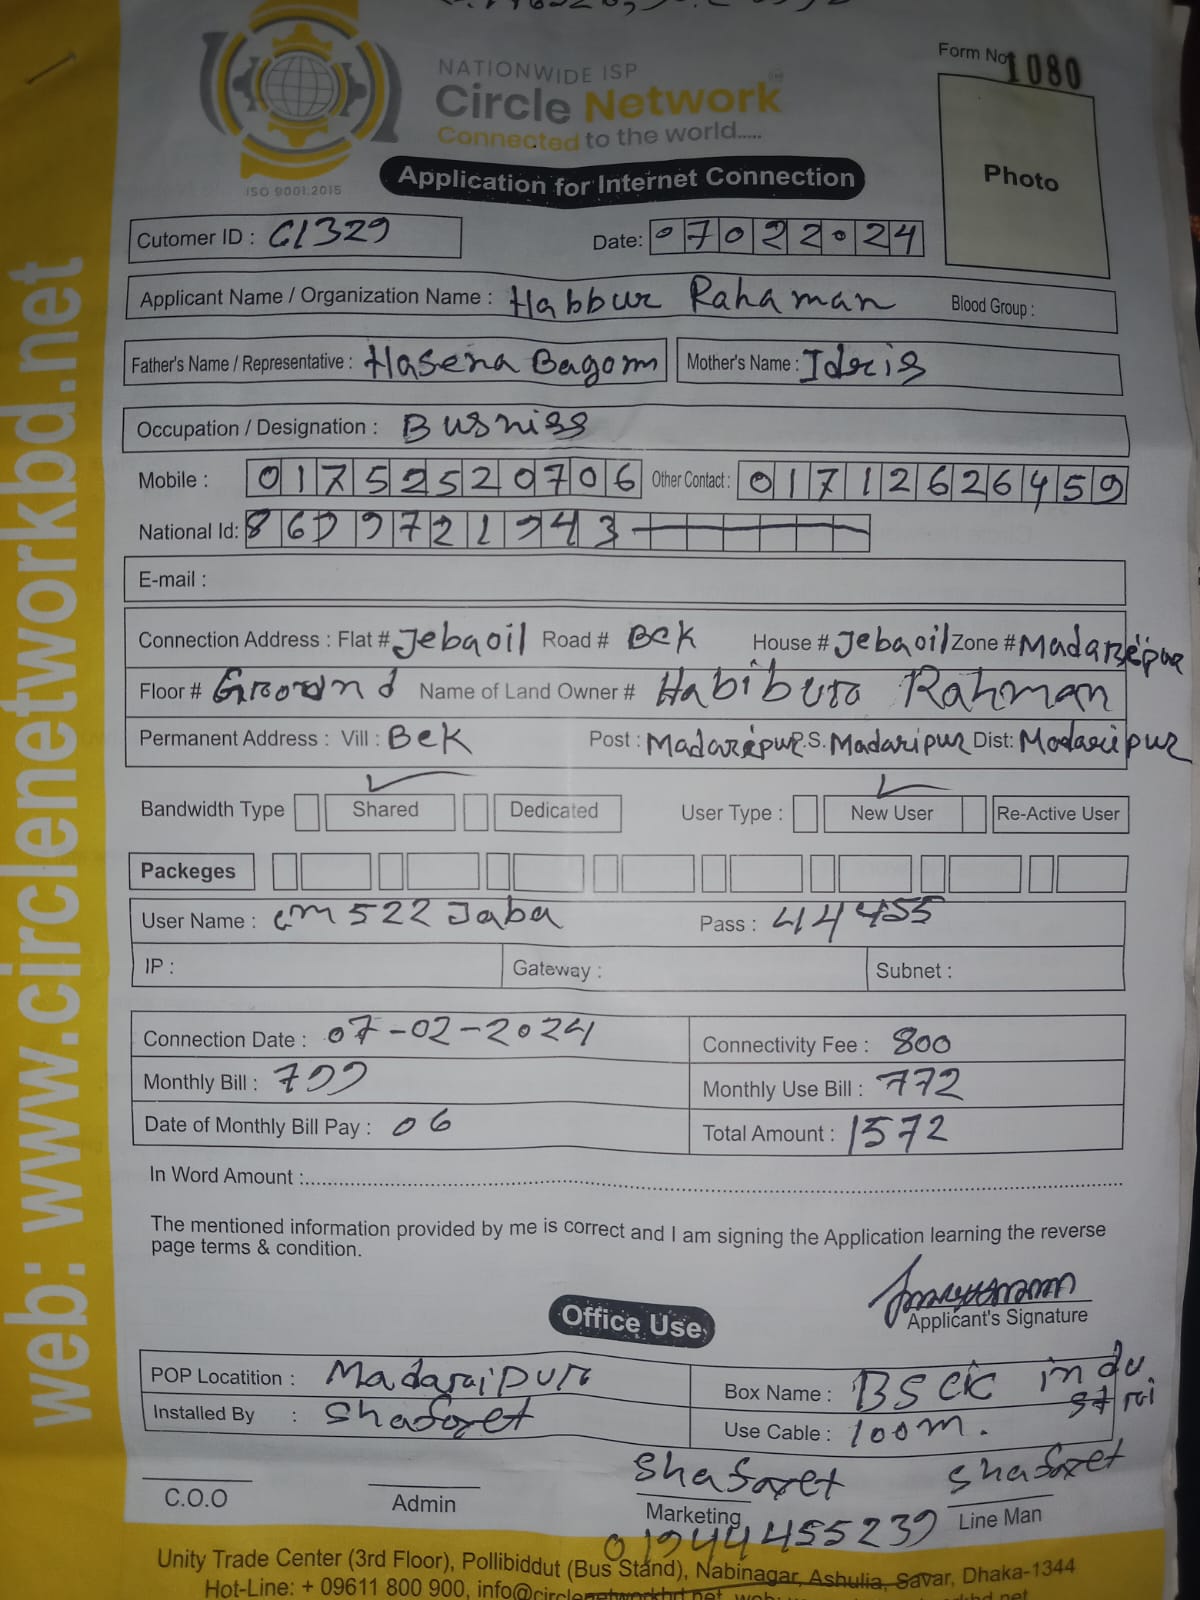 NATIONWIDE ISP
Circle Network
Connected to the world.....
ISO 9001:2015
Form No 1080
Photo
Application for Internet Connection
Cutomer ID : C1329
Date: 07022024
Applicant Name / Organization Name : Habbur Rahaman Blood Group :
Father's Name / Representative : Hasena Bagom Mother's Name : Idris
Occupation / Designation : Busniss
Mobile : 01752520706 Other Contact : 01712626459
National Id: 8699721943
E-mail :
Connection Address : Flat # Jebaoil Road # Bck House # Jebaoil Zone # Madaripur
Floor # Groound Name of Land Owner # Habibur Rahman
Permanent Address : Vill : Bck Post : Madaripur P.S. Madaripur Dist: Madaripur
Bandwidth Type Shared Dedicated User Type : New User Re-Active User
Packeges
User Name : cm522Jaba Pass : 44455
IP : Gateway : Subnet :
Connection Date : 07-02-2024 Connectivity Fee : 800
Monthly Bill : 799 Monthly Use Bill : 772
Date of Monthly Bill Pay : 06 Total Amount : 1572
In Word Amount :
The mentioned information provided by me is correct and I am signing the Application learning the reverse
page terms & condition.
Applicant's Signature
Office Use
POP Locatition : Madaraipur Box Name : BSCIC indu
strai
Installed By : Shafayet Use Cable : 100m.
Shafayet Shafayet
C.O.O Admin Marketing Line Man
01944455239
Unity Trade Center (3rd Floor), Pollibiddut (Bus Stand), Nabinagar, Ashulia, Savar, Dhaka-1344
Hot-Line: + 09611 800 900,
web: www.circlenetworkbd.net